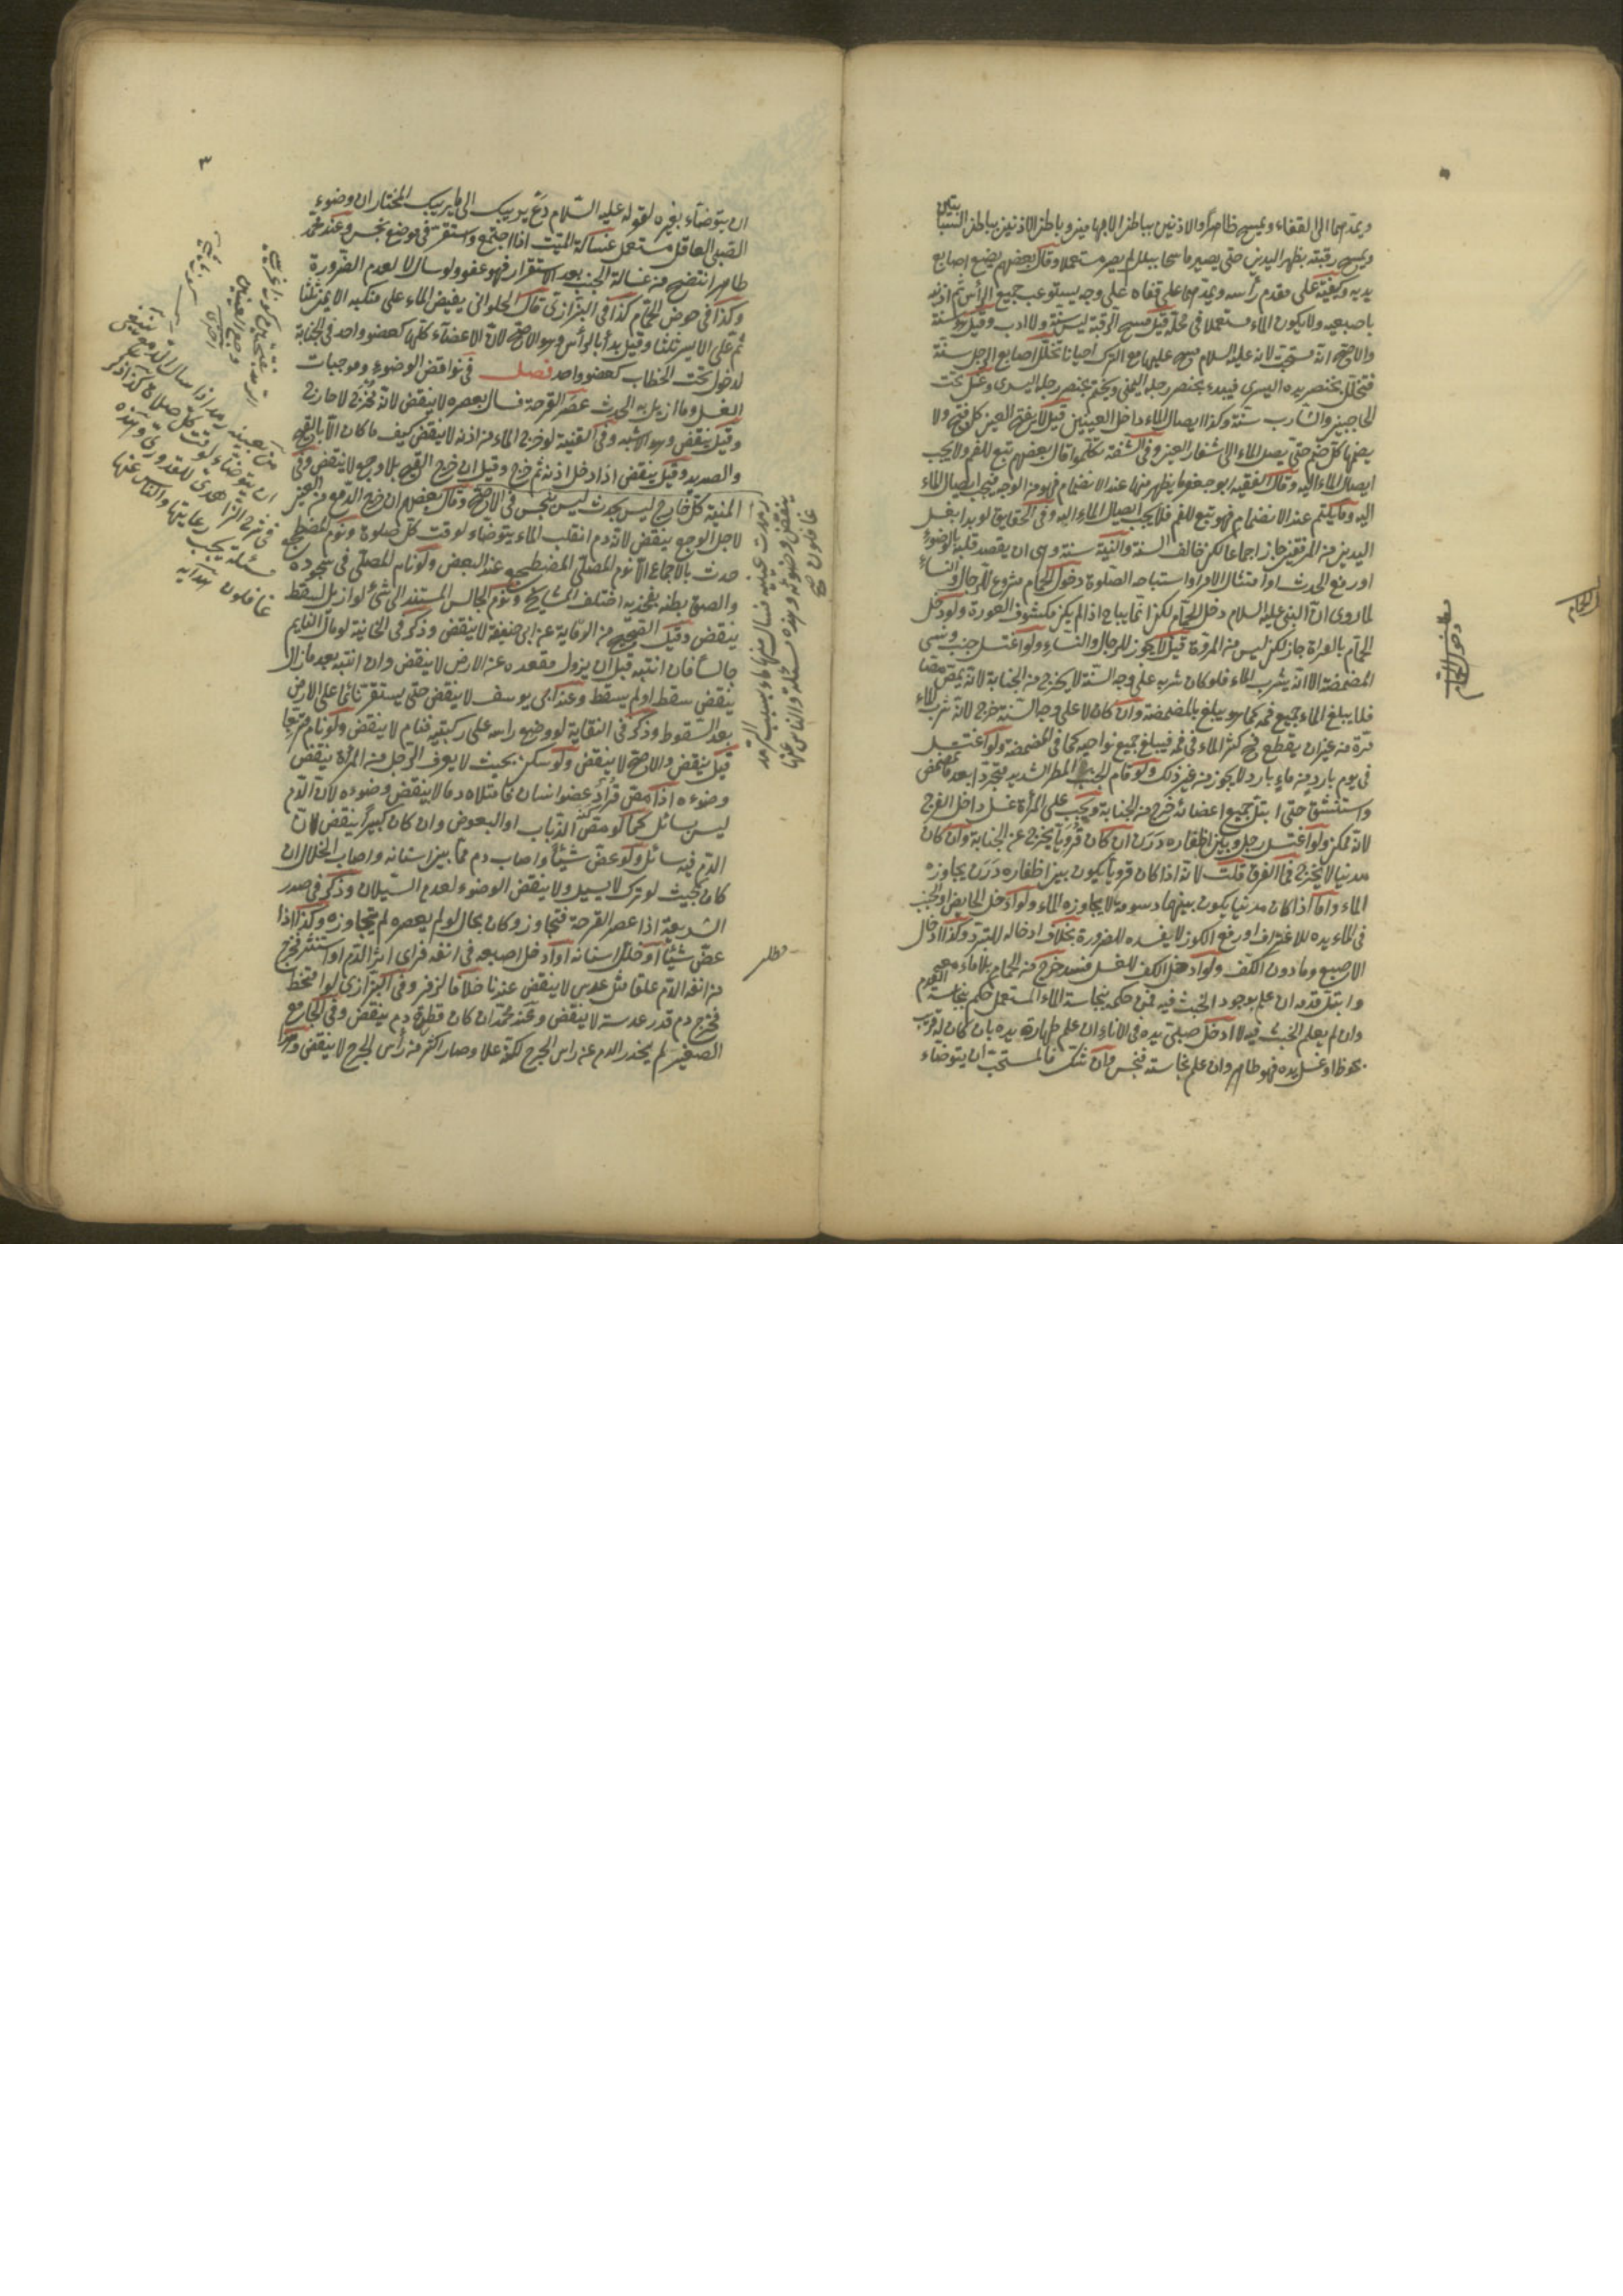 ويمدهما الى القفاء ويمسح ظاهر الاذنين بباطن الابهامين وباطن الاذنين بباطن السبابتين
ويمسح رقبته بظهر اليدين حتى يصير ماسحا ببلل لم يصر مستعملا وقال بعضهم يضع اصابع
يديه وكفيه على مقدم رأسه ويمدهما على قفاه على وجه يستوعب جميع الرأس ثم اذنيه
باصبعيه ولا يكون الماء مستعملا في محله قيل مسح الرقبة ليس سنة ولا ادب وقيل سنة
والاصح انه مستحب لانه عليه السلام مسح عليها مع الترك احيانا تخلل اصابع الرجل سنة
فتخلل بخنصر يده اليسرى فيبدء بخنصر رجله اليمنى ويختم بخنصر رجله اليسرى وغسل تحت
الحاجبين والشارب سنة وكذا ايصال الماء داخل العينين قيل لا يفتح العين كل فتح ولا
يضمها كل ضم حتى يصل الماء الى اشفار العين وفي الشفة تكلموا قال بعضهم تبع للفم ولا يجب
ايصال الماء اليه وقال الفقيه ابو جعفر ما يظهر منها عند الانضمام فهو من الوجه فيجب ايصال الماء
اليه وما يكتم عند الانضمام فهو تبع للفم فلا يجب ايصال الماء اليه وفي الحقايق لو بدا بغسل
اليدين من المرفقين جاز اجماعا لكن خالف السنة والنية سنة وهى ان يقصد قلبه بالوضوء
او رفع الحدث او امتثال الامر او استباحة الصلوة دخول الحمام مشروع للرجال والنساء
لما روى ان النبي عليه السلام دخل الحمام لكن انما يباح اذا لم يكن مكشوف العورة ولو دخل
الحمام بالعراة جاز لكن ليس من المروة قيل لا يجوز للرجال والنساء ولو اغتسل جنب ونسى
المضمضة الا انه يشرب الماء فلو كان شربه على وجه السنة لا يخرج من الجنابة لانه يمص مصا
فلا يبلغ الماء جميع فمه كما هو يبلغ بالمضمضة وان كان لا على وجه السنة خرج لانه شرب الماء
مرة من غير ان يقطع فمه كثر الماء في فمه فيبلغ جميع نواحيه كما في المضمضة ولو اغتسل
في يوم بارد من ماء بارد لا يجوز من غير ذلك ولو قام الجنب في المطر الشديد متجردا بعد ما تمضمض
واستنشق حتى ابتل جميع اعضائه خرج من الجنابة ويجب على المرأة غسل داخل الفرج
لانه ممكن ولو اغتسل رجل وبين اظفاره درن ان كان قرويا يخرج عن الجنابة وان كان
مدنيا لا يخرج فما الفرق قلت لانه اذا كان قرويا يكون بين اظفاره درن يجاوزه
الماء واما اذا كان مدنيا يكون بينها دسومة لا يجاوزه الماء ولو ادخل الحايض او الجنب
في الماء يده للاغتراف او رفع الكوز لا يفسده للضرورة بخلاف ادخاله للتبرد وكذا ادخال
الاصبع وما دون الكف ولو ادخل الكف للغسل فسد خرج من الحمام بلا ماء معه
وابتل قدمه ان علم بوجود الخبث فيه فمن حكمه بنجاسة الماء المستعمل حكم بنجاسة القدم
وان لم يعلم الخبث فيه لا ادخل صبي يده في الاناء ان علم طهارة يده بان كان له رقيب
يحفظ او غسل يده فهو طاهر وان علم نجاسته فنجس وان شك فالمستحب ان يتوضاء
مطلب في
دخول الحمام
٣
ان يتوضاء بغيره لقوله عليه السلام دع ما يريبك الى ما لا يريبك المختار ان وضوء
الصبي العاقل مستعمل غسالة الميت اذا اجتمع واستقر في موضع نجس وعند محمد
طاهر انتضح من غسالة الجنب بعد الاستقرار فهو عفو ولو سال لا لعدم الضرورة
وكذا في حوض الحمام كذا في البزازى قال الحلوانى يفيض الماء على منكبه الايمن ثلثا
ثم على الايسر ثلثا وقيل يبدأ بالرأس وهو الاصح لان الاعضاء كلها كعضو واحد في الجنابة
لدخول تحت الخطاب كعضو واحد فصل في نواقض الوضوء وموجبات
الغسل وما ازيل به الحدث عصر القرحة فسال بعصره لا ينقض لانه مخرج لا خارج
وقيل ينقض وهو الاشبه وفي القنية لو خرج الماء من اذنه لا ينقض كيف ما كان الا بالقيح
والصديد وقيل ينقض اذا دخل اذنه ثم خرج وقيل ان خرج القيح بلا وجع لا ينقض وفي
المنية كل خارج ليس بحدث ليس بنجس في الاصح وقال بعضهم ان خرج الدمع من العين
لاجل الوجع ينقض لانه دم انقلب الماء يتوضاء لوقت كل صلوة ونوم المضطجع
حدث بالاجماع الا نوم المصلي المضطجع عند البعض ولو نام المصلي في سجوده
والصق بطنه بفخذيه اختلف المشايخ ونوم الجالس المستند الى شئ لو ازيل لسقط
ينقض وقيل الصحيح من الوقاية عن ابي حنيفة لا ينقض وذكر في الخانية لو مال النايم
جالسا فان انتبه قبل ان يزول مقعده عن الارض لا ينقض وان انتبه بعد ما زال
ينقض سقط او لم يسقط وعند ابي يوسف لا ينقض حتى يستقر نائما على الارض
بعد السقوط وذكر في النقاية لو وضع راسه على ركبتيه فنام لا ينقض ولو نام متربعا
قيل ينقض والاصح لا ينقض ولو سكر بحيث لا يعرف الرجل من المرأة ينقض
وضوءه اذا مص قراد عضو انسان فامتلاء دما لا ينقض وضوءه لان الدم
ليس بسائل كما لو مصه الذباب او البعوض وان كان كبيرا ينقض لان
الدم فيه سائل ولو عض شيئا واصاب دم مما بين اسنانه واصاب الخلال ان
كان بحيث لو ترك لا يسيل ولا ينقض الوضوء لعدم السيلان وذكر في صدر
الشريعة اذا عصر القرحة فتجاوز وكان بحال لو لم يعصره لم يتجاوزه وكذا اذا
عض شيئا او خلل اسنانه او ادخل اصبعه في انفه فراى اثر الدم او استنثر فخرج
من انفه الدم علقا مثل عدس لا ينقض عندنا خلافا لزفر وفي البزازى لو امتخط
فخرج دم قدر عدسة لا ينقض وعند محمد ان كان قطرة دم ينقض وفي الجامع
الصغير لم ينحدر الدم عن راس الجرح لكنه علا وصار اكثر من رأس الجرح لا ينقض
رمدت عينيه فسال منها ماء بسبب الرمد
ينقض وضوئه وهذه مسئلة والناس عنها
غافلون صح
من بعينه رمد اذا سال الدمع ينبغي
ان يتوضاء لوقت كل صلاة كذا ذكر
في شرح الزاهدى للقدورى وهذه
مسئلة يجب رعايتها والناس عنها
غافلون هدايه
مطلب